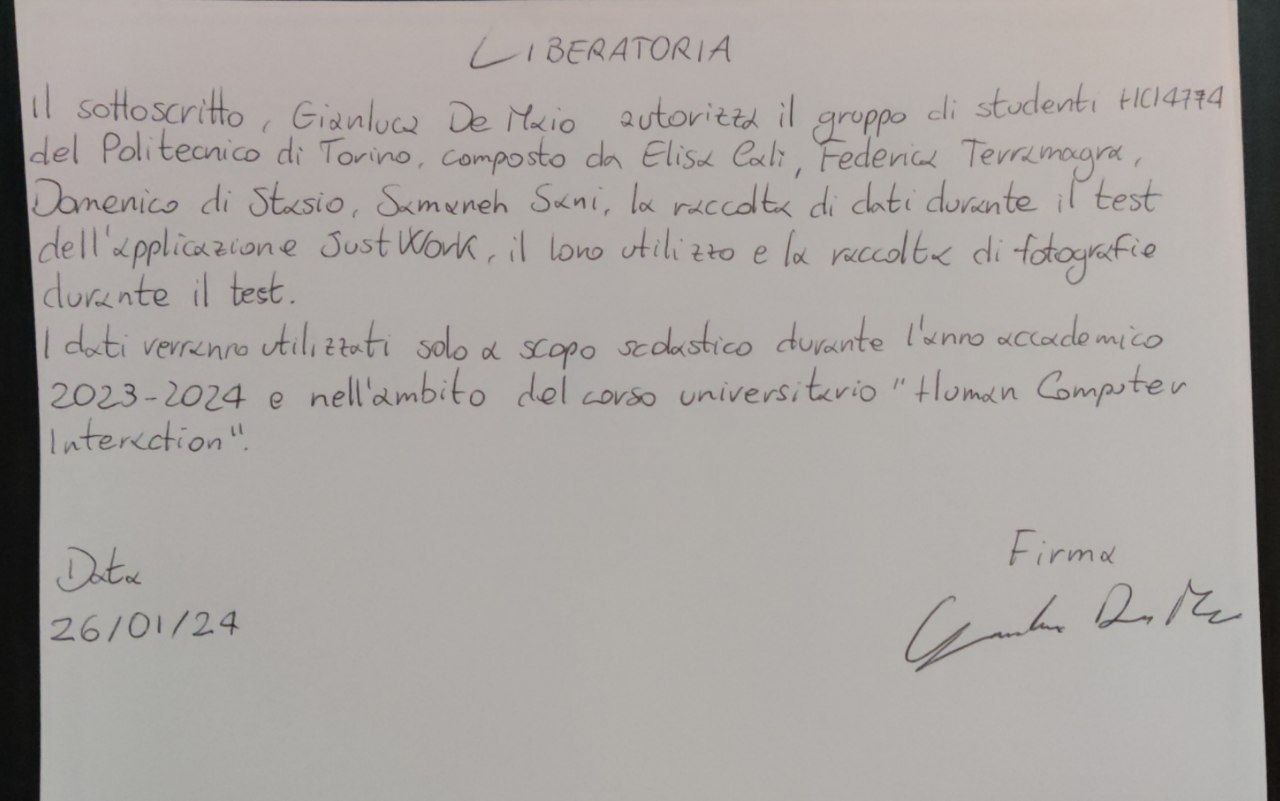 LIBERATORIA
Il sottoscritto, Gianluca De Maio autorizza il gruppo di studenti HCI4774
del Politecnico di Torino, composto da Elisa Calì, Federica Terramagra,
Domenico di Stasio, Samaneh Sani, la raccolta di dati durante il test
dell'applicazione JustWork, il loro utilizzo e la raccolta di fotografie
durante il test.
I dati verranno utilizzati solo a scopo scolastico durante l'anno accademico
2023-2024 e nell'ambito del corso universitario "Human Computer
Interaction".
Data
26/01/24
Firma
Gianluca De Maio